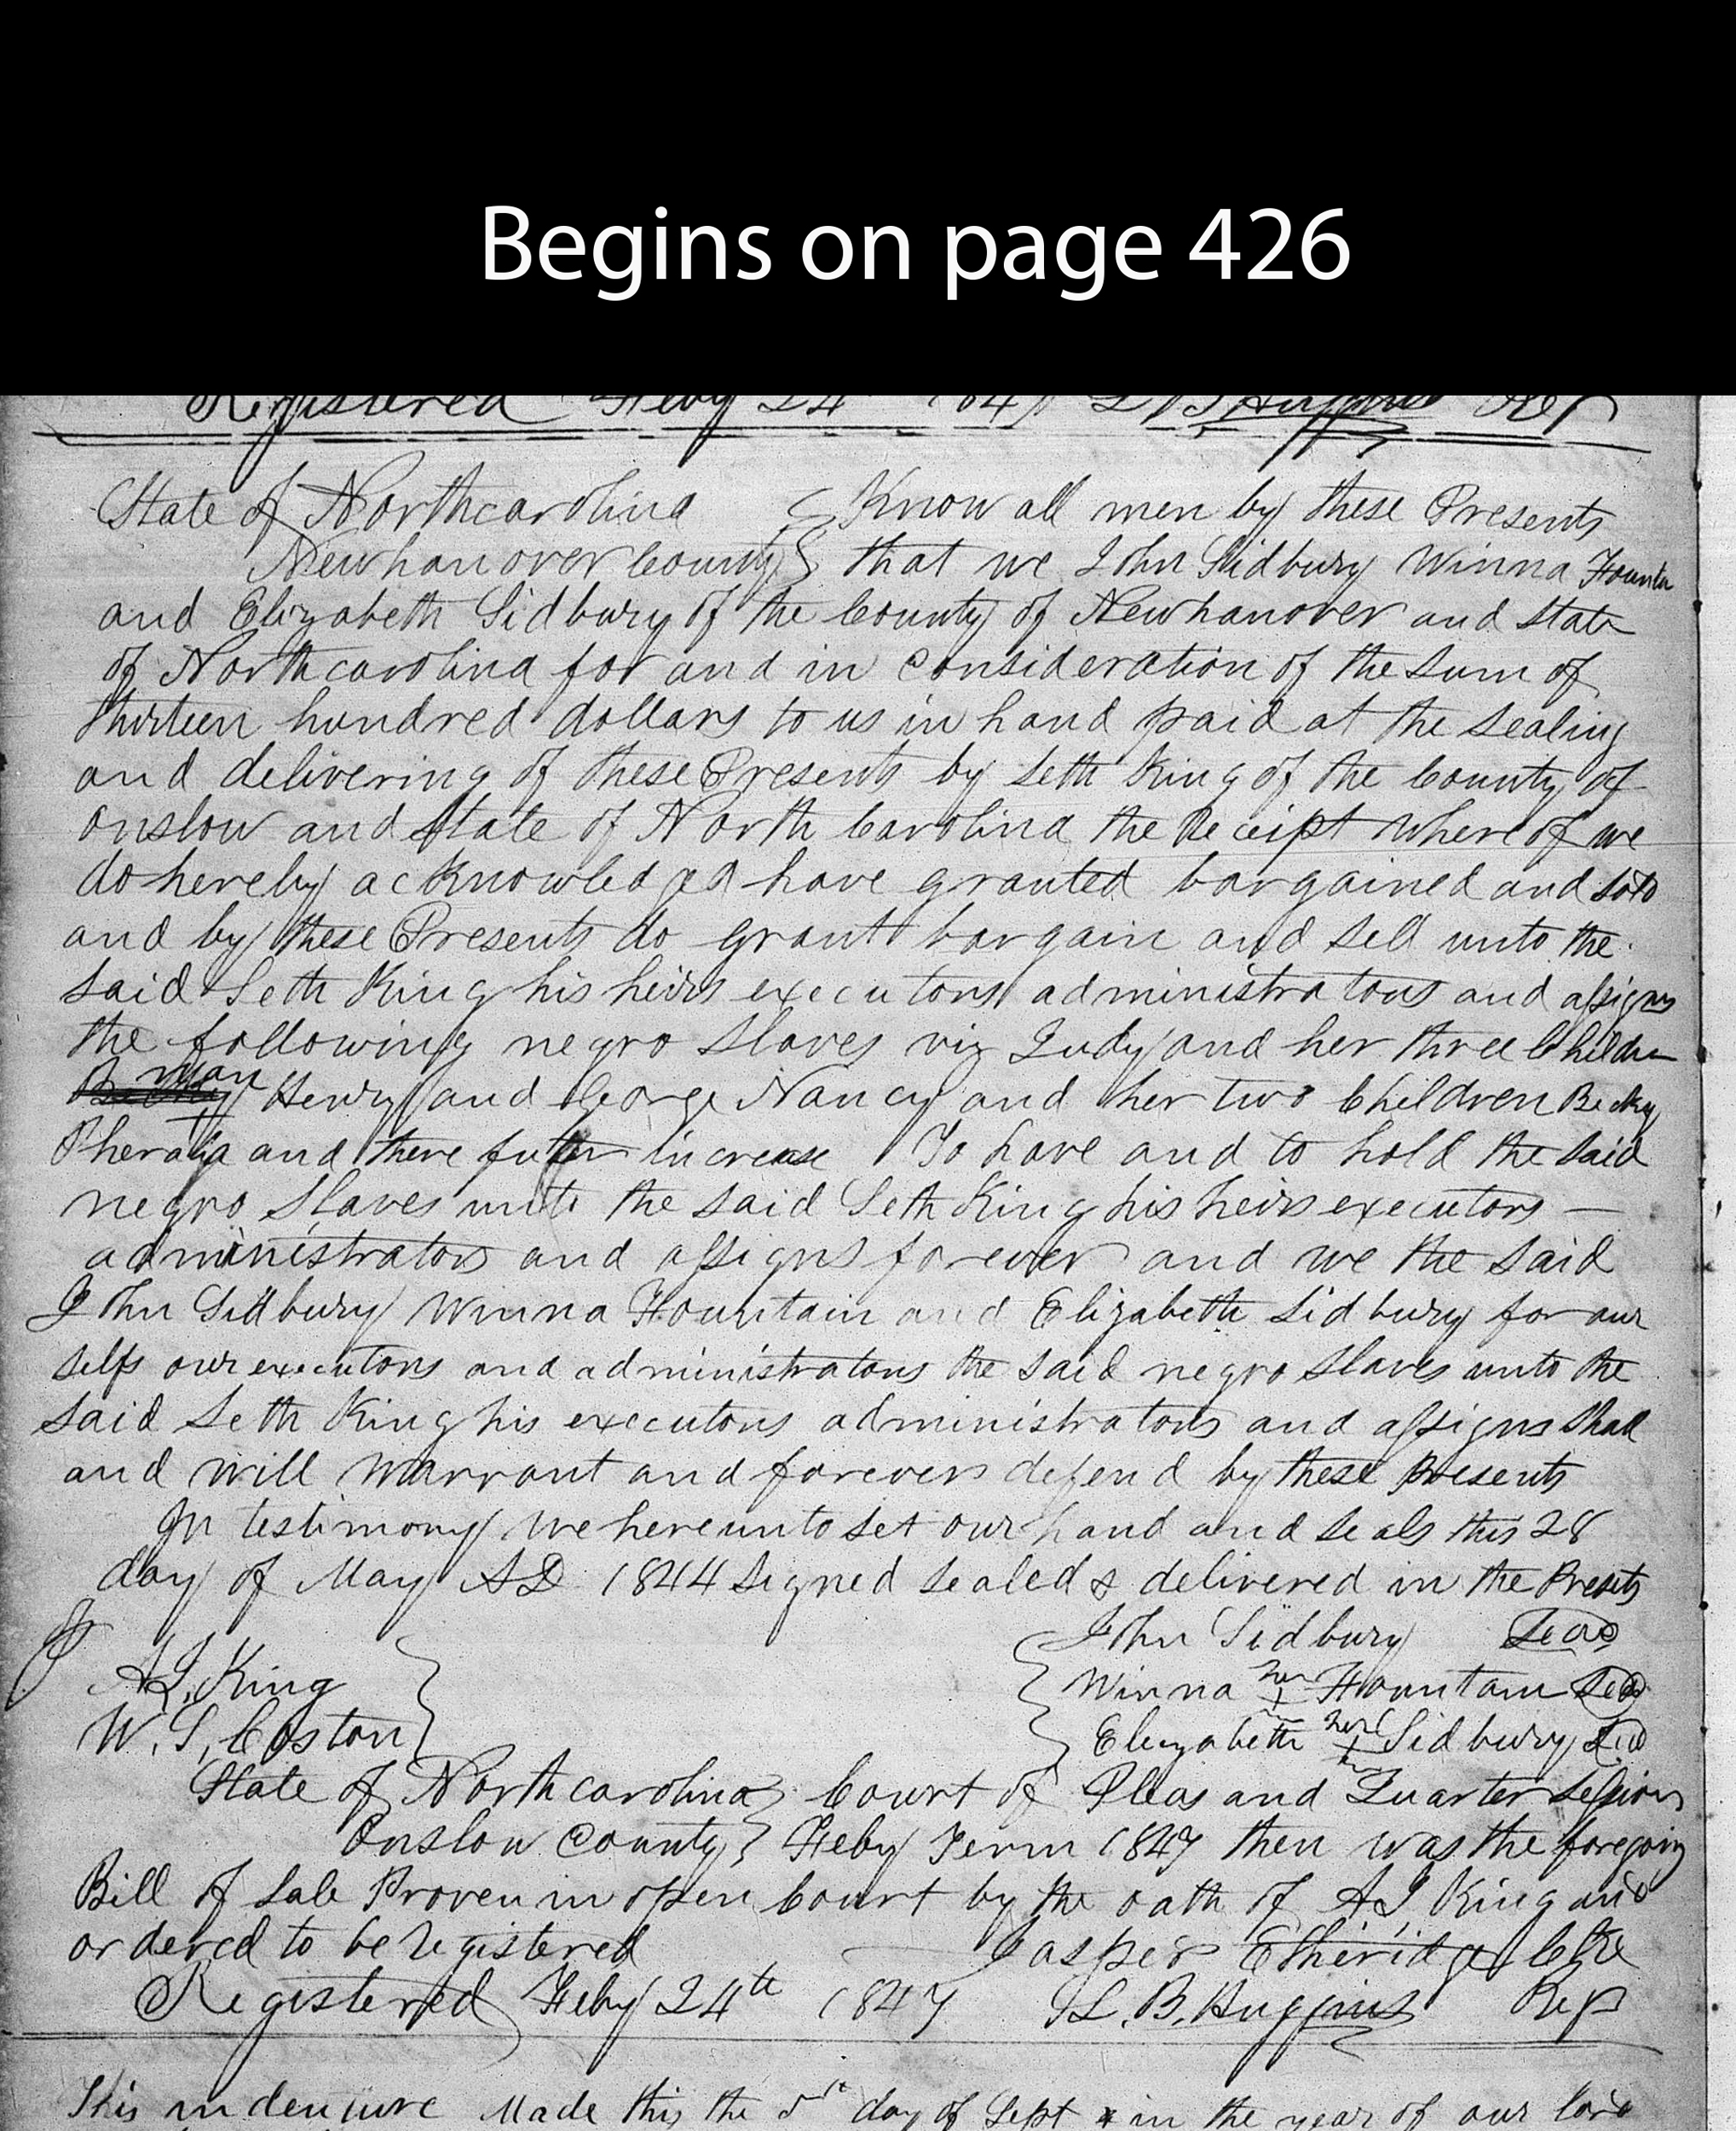 Begins on page 426
Registered Feby 24 1847 L B Huggins Regr
State of Northcarolina Know all men by these Presents
Newhanover County that we John Sidbury Winna Fountn
and Elizabeth Sidbury of the County of Newhanover and State
of Northcarolina for and in consideration of the sum of
thirteen hundred dollars to us in hand paid at the sealing
and delivering of these Presents by Seth King of the County of
onslow and State of North Carolina the Receipt whereof we
do hereby acknowledged have granted bargained and sold
and by these Presents do grant bargain and sell unto the
said Seth King his heirs executors administrators and assigns
the following negro slaves viz Judy and her three Children
Henry and George Nancy and her two Children Becky
and there futer increase To have and to hold the said
negro slaves unto the said Seth King his heirs executors —
administrators and assigns forever and we the said
John Sidbury Winna Fountain and Elizabeth Sidbury for our
selfs our executors and administrators the said negro slaves unto the
said Seth King his executors administrators and assigns shall
and will warrant and forever defend by these Presents
In testimony we hereunto set our hand and seals this 28
day of May AD 1844 signed sealed & delivered in the Presents
John Sidbury Seal
A J. King Winna her X Fountain Seal
W. S. Coston Elizabeth her X Sidbury Seal
State of Northcarolina Court of Pleas and Quarter Sessions
Onslow County Feby Term 1847 then was the foregoing
Bill of Sale Proven in open Court by the oath of A J King and
ordered to be registered Jasper Etheridge Clk
Registered Feby 24th 1847 L. B. Huggins Regr
This indenture Made this the 5th day of Sept in the year of our lord